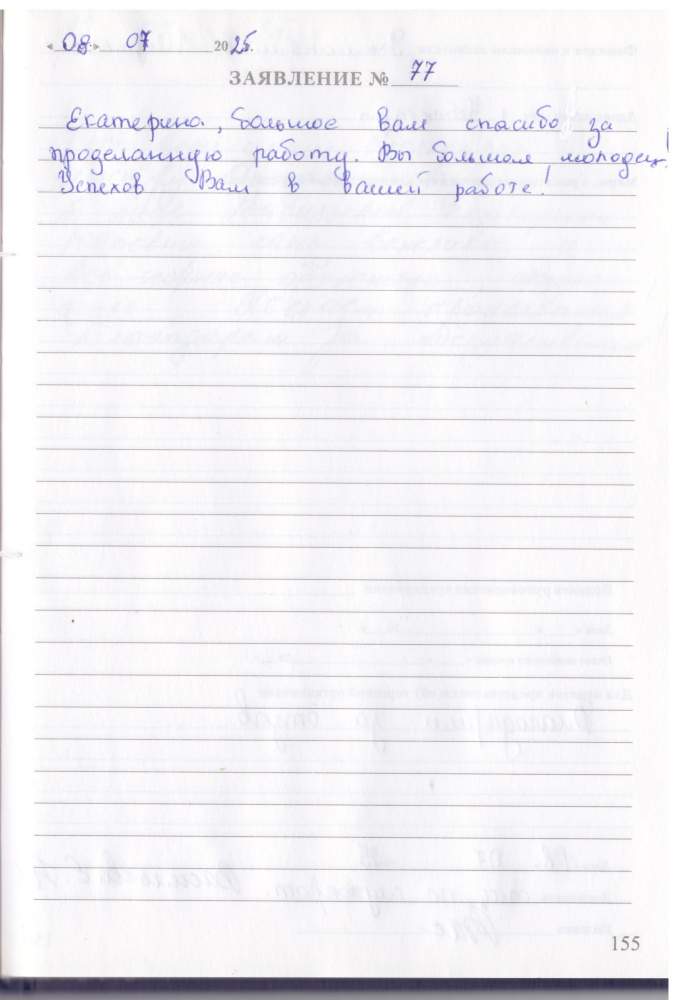 «08» 07 2025.
ЗАЯВЛЕНИЕ № 77
Екатерина, большое вам спасибо за
проделанную работу. Вы большой молодец!
Успехов Вам в вашей работе!
155